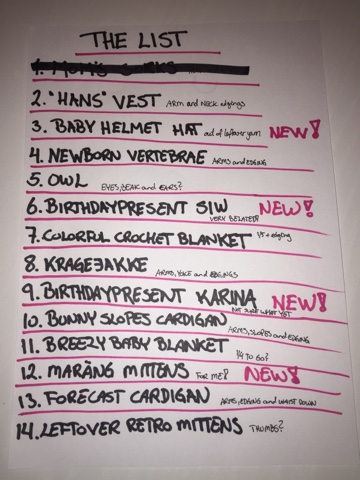 THE LIST
1. MOM'S SOCKS
2. "HANS" VEST ARM and NECK edgings
3. BABY HELMET HAT out of leftover yarn NEW!
4. NEWBORN VERTEBRAE ARMS and EDGING
5. OWL EYES, BEAK and EARS?
6. BIRTHDAYPRESENT SIW VERY BELATED! NEW!
7. COLORFUL CROCHET BLANKET
8. KRAGEJAKKE ARMS, YOKE and EDGINGS
9. BIRTHDAYPRESENT KARINA NOT SURE WHAT YET NEW!
10. BUNNY SLOPES CARDIGAN ARMS, SLOPES and EDGING
11. BREEZY BABY BLANKET 14 TO GO?
12. MARÄNG MITTENS FOR ME? NEW!
13. FORECAST CARDIGAN ARMS, EDGING and WAIST DOWN
14. LEFTOVER RETRO MITTENS THUMBS?